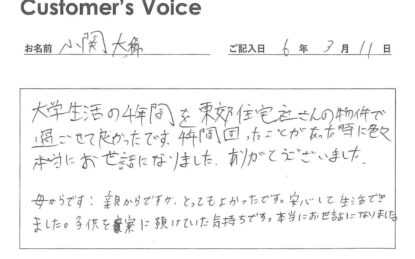 Customer's Voice
お名前 小関 大 ご記入日 6 年 3 月 11 日
大学生活の4年間を東郊住宅社さんの物件で
過ごせて良かったです。4年間困ったことがあった時に色々
本当にお世話になりました。ありがとうございました。
母からです! 親からですが、とってもよかったです。安心して生活でき
ました。子供を実家に預けていた気持ちです。本当にお世話になりました